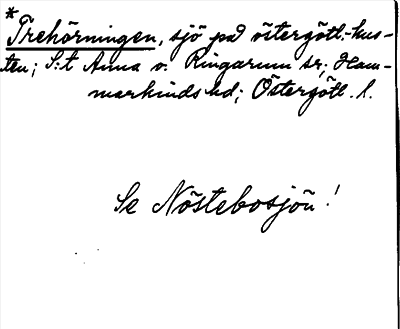 *
Trehörningen, sjö på östergötl.-kus-
ten; S:t Anna o. Ringarum sr; Ham-
markinds hd; Östergötl. l.
Se Nöstebosjön!